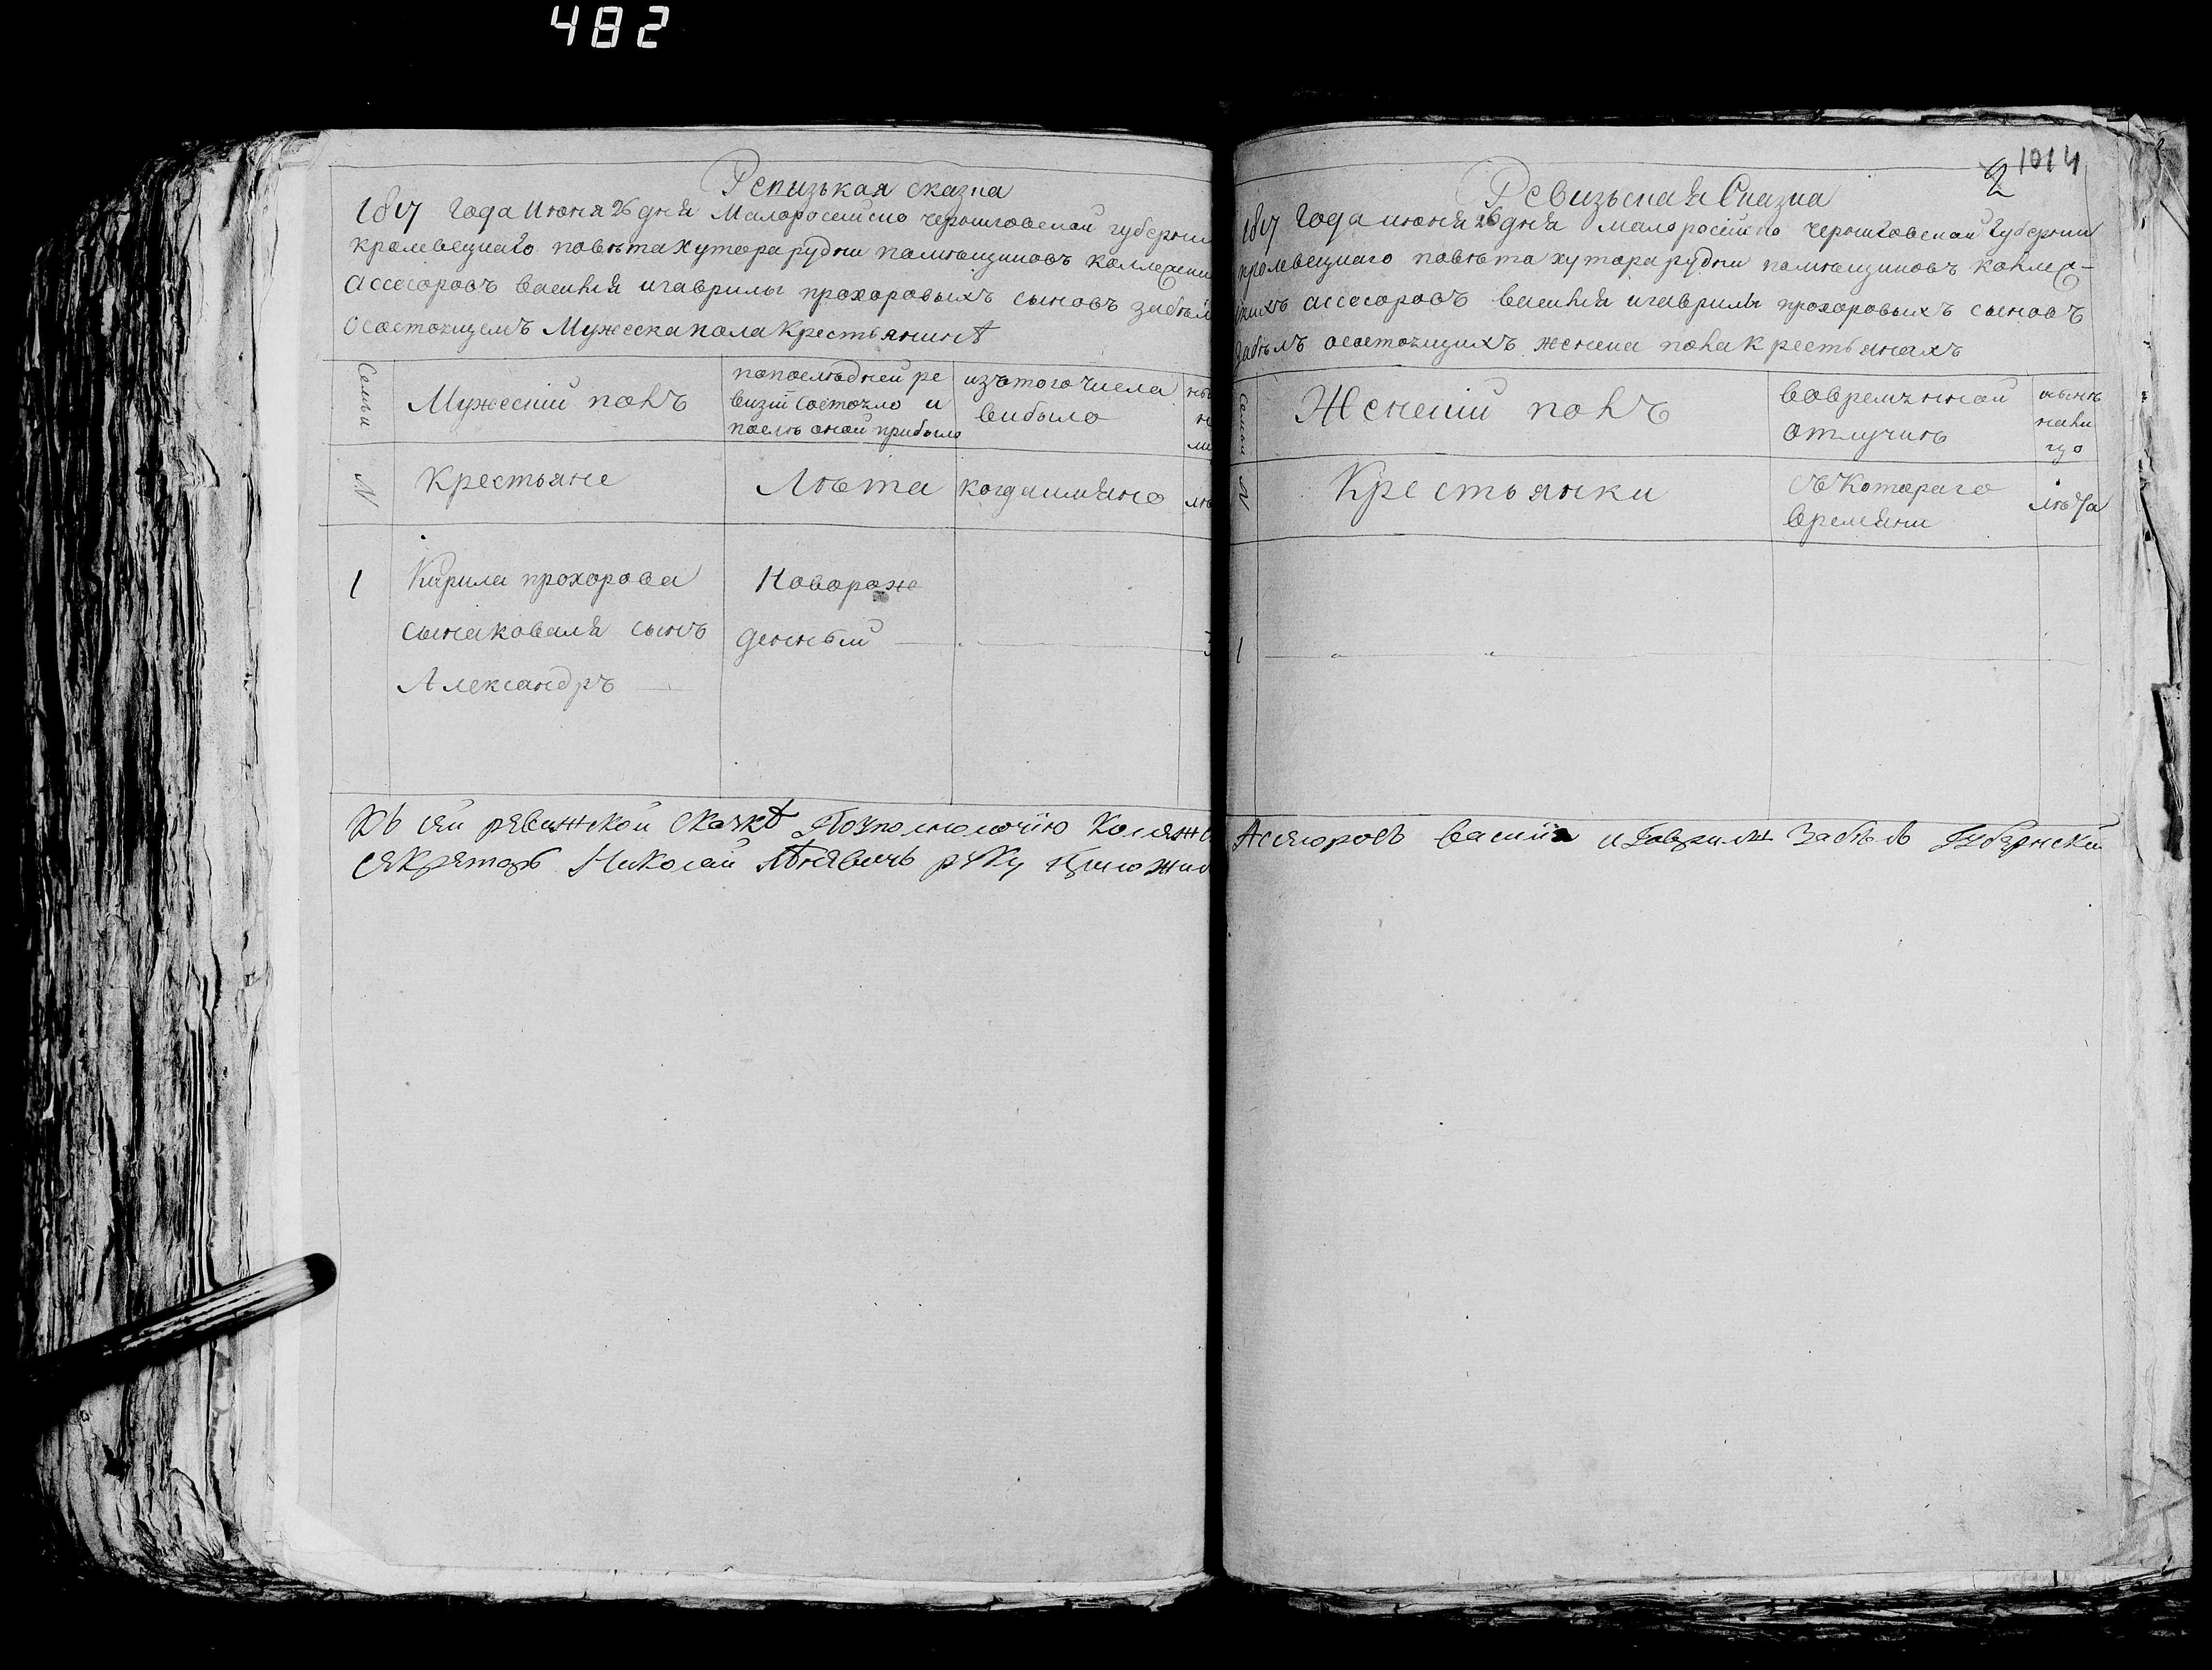 482
Ревизькая сказка
1817 года Июня 26 дня Малоросейско черниговской губернии
кролевецкаго повѣта хутора рудни помѣщиковъ коллежски
Ассесоровъ василия игаврилы прохоровыхъ сыновъ забѣл
осостоящемъ Мужеска пола Крестьянинѣ
Семьи
Мужескій полъ
попослѣдней ре
визіи состояло и
послѣ оной прибыло
изътого числа
выбыло
N
Крестьяне
Лѣта
когдаимяно
1
Кирила прохорова
сынаковаля сынъ
Александръ
Новорож
денный
Къ сей ревижской скаскѣ Поуполномочию Колежс
секретарь Николай руку приложил
1014
2
Ревизьская Сказка
1817 Года июня 26 дня малоросейско черниговской Губернии
кролевецкаго повѣта хутора рудни помѣщиковъ колле-
скихъ ассесоровъ василия игаврилы прохоровыхъ сыновъ
Забѣлъ осостоящихъ женска пола крестьянахъ
Семьи
Женскій полъ
вовремянной
отлучкѣ
нынѣ
нали
цо
N
Крестьянки
съ Котораго
времяни
лѣта
1
Асесоровъ василия и Гаврилы Забѣлъ Губернский